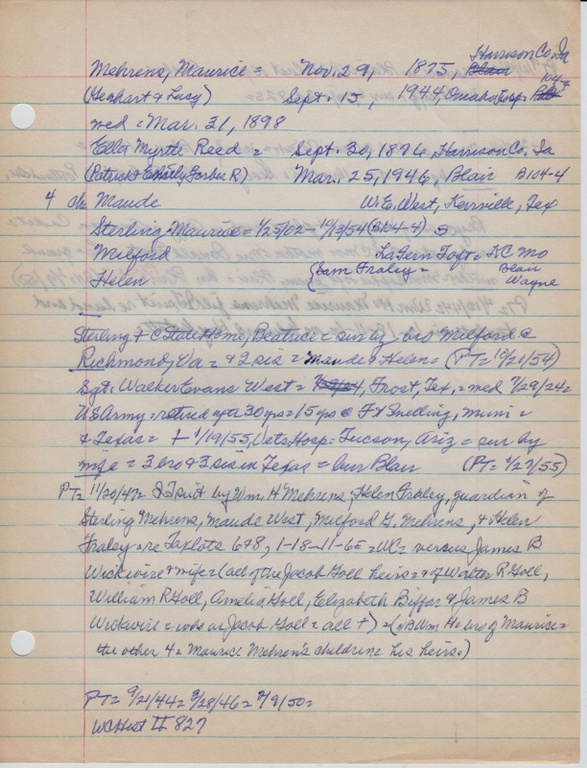 Harrison Co, Ia
Mehrens, Maurice = Nov. 29, 1875, Blair
(Gerhart & Lucy) Sept. 15, 1944, Omaha Hosp=
med = Mar. 31, 1898
Ella Myrtle Reed = Sept. 30, 1876, Harrison Co. Ia
(Patrick & Emily Garber R) Mar. 25, 1946, Blair B104-4
4 ch= Maude W.E. West, Kerrville, Tex
Sterling Maurice = 1/25/02 - 10/13/54 (B104-4) S
Milford LaFern Toft = KC Mo
Helen {Sam Fraley = Blair
Wayne
Sterling + @ State Home, Beatrice = sur by bro Milford @
Richmond, Va = & 2 sis = Maude & Helen = (PT= 10/21/54)
Sgt. Walker Evans West = Frost, Tex, = med 7/29/24 =
US Army = retired aft 30 yrs = 15 yrs @ Ft Snelling, Minn =
& Texas = + 1/19/55, Vets Hosp = Tucson, Ariz = sur by
wife = 3 bro & 3 sis in Texas = bur Blair (PT= 1/27/55)
PT= 11/20/47 = Q T suit by Wm. H Mehrens, Helen Fraley, guardian of
Sterling Mehrens, Maude West, Milford G. Mehrens, & Helen
Fraley = re Taxlots 6&8, 1-18-11-6E = WC = versus James B
Wickwire & wife = (all of the Jacob Goll heirs = & of Walter R Goll,
William R Goll, Amelia Goll, Elizabeth Biffar & James B
Wickwire = Jacob Goll = all +) = (Wm H = bro of Maurice =
the other 4 = Maurice Mehrens children = his heirs.)
PT= 9/21/44 = 3/28/46 = 2/9/50 =
WCHist II 827